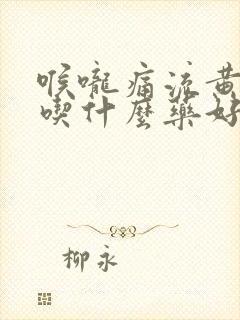 喉嚨痛流黃
喫什麼藥好
柳永